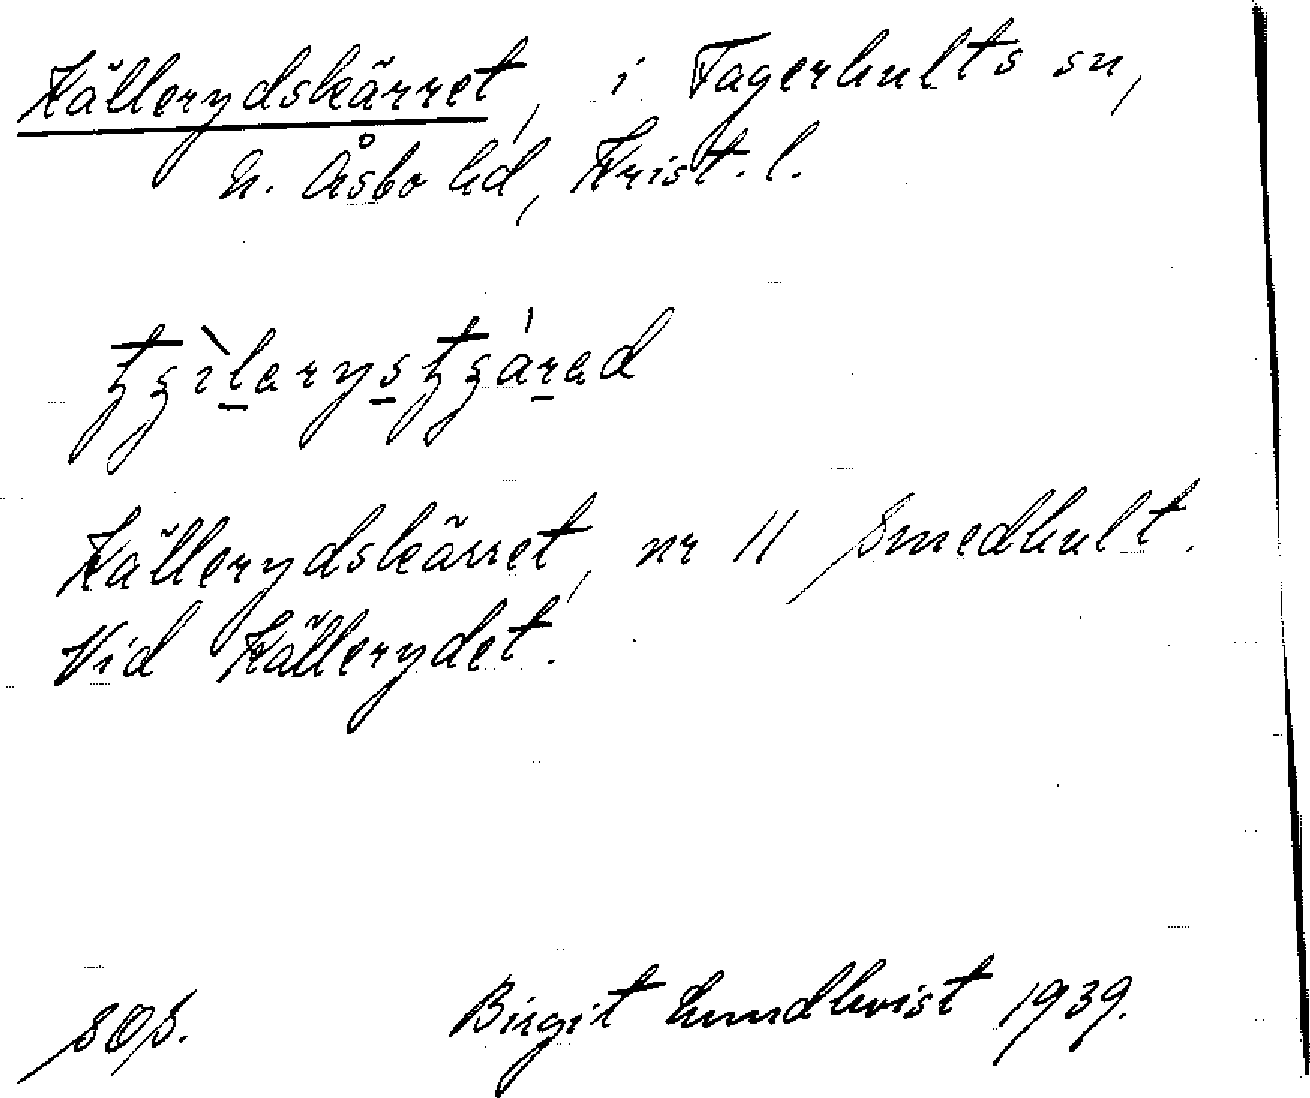 Källerydskärret, i Fagerhults sn,
N. Åsbo hd, Krist. l.
Källerydskärret, nr 11 Smedhult.
Vid Källerydet.
SOS. Birgit Lundkvist 1939.